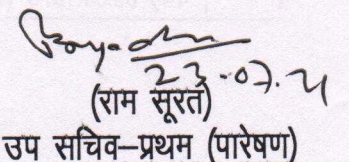 23.07.21
(राम सूरत)
उप सचिव–प्रथम (पारेषण)